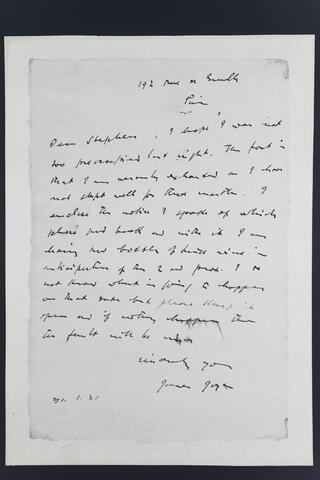 192 rue de Grenelle
Paris
Dear Stephens, I hope I was not
too preoccupied last night. The fact is
that I am nervously exhausted as I have
not slept well for three months. I
enclose the notice I spoke of which
please send back and with it I am
having two bottles of Swiss wine in
anticipation of the 2 and prox. I do
not know what is going to happen
on that date but please keep it
open and if nothing happens then
the fault will be
sincerely yours
James Joyce
31.1.31